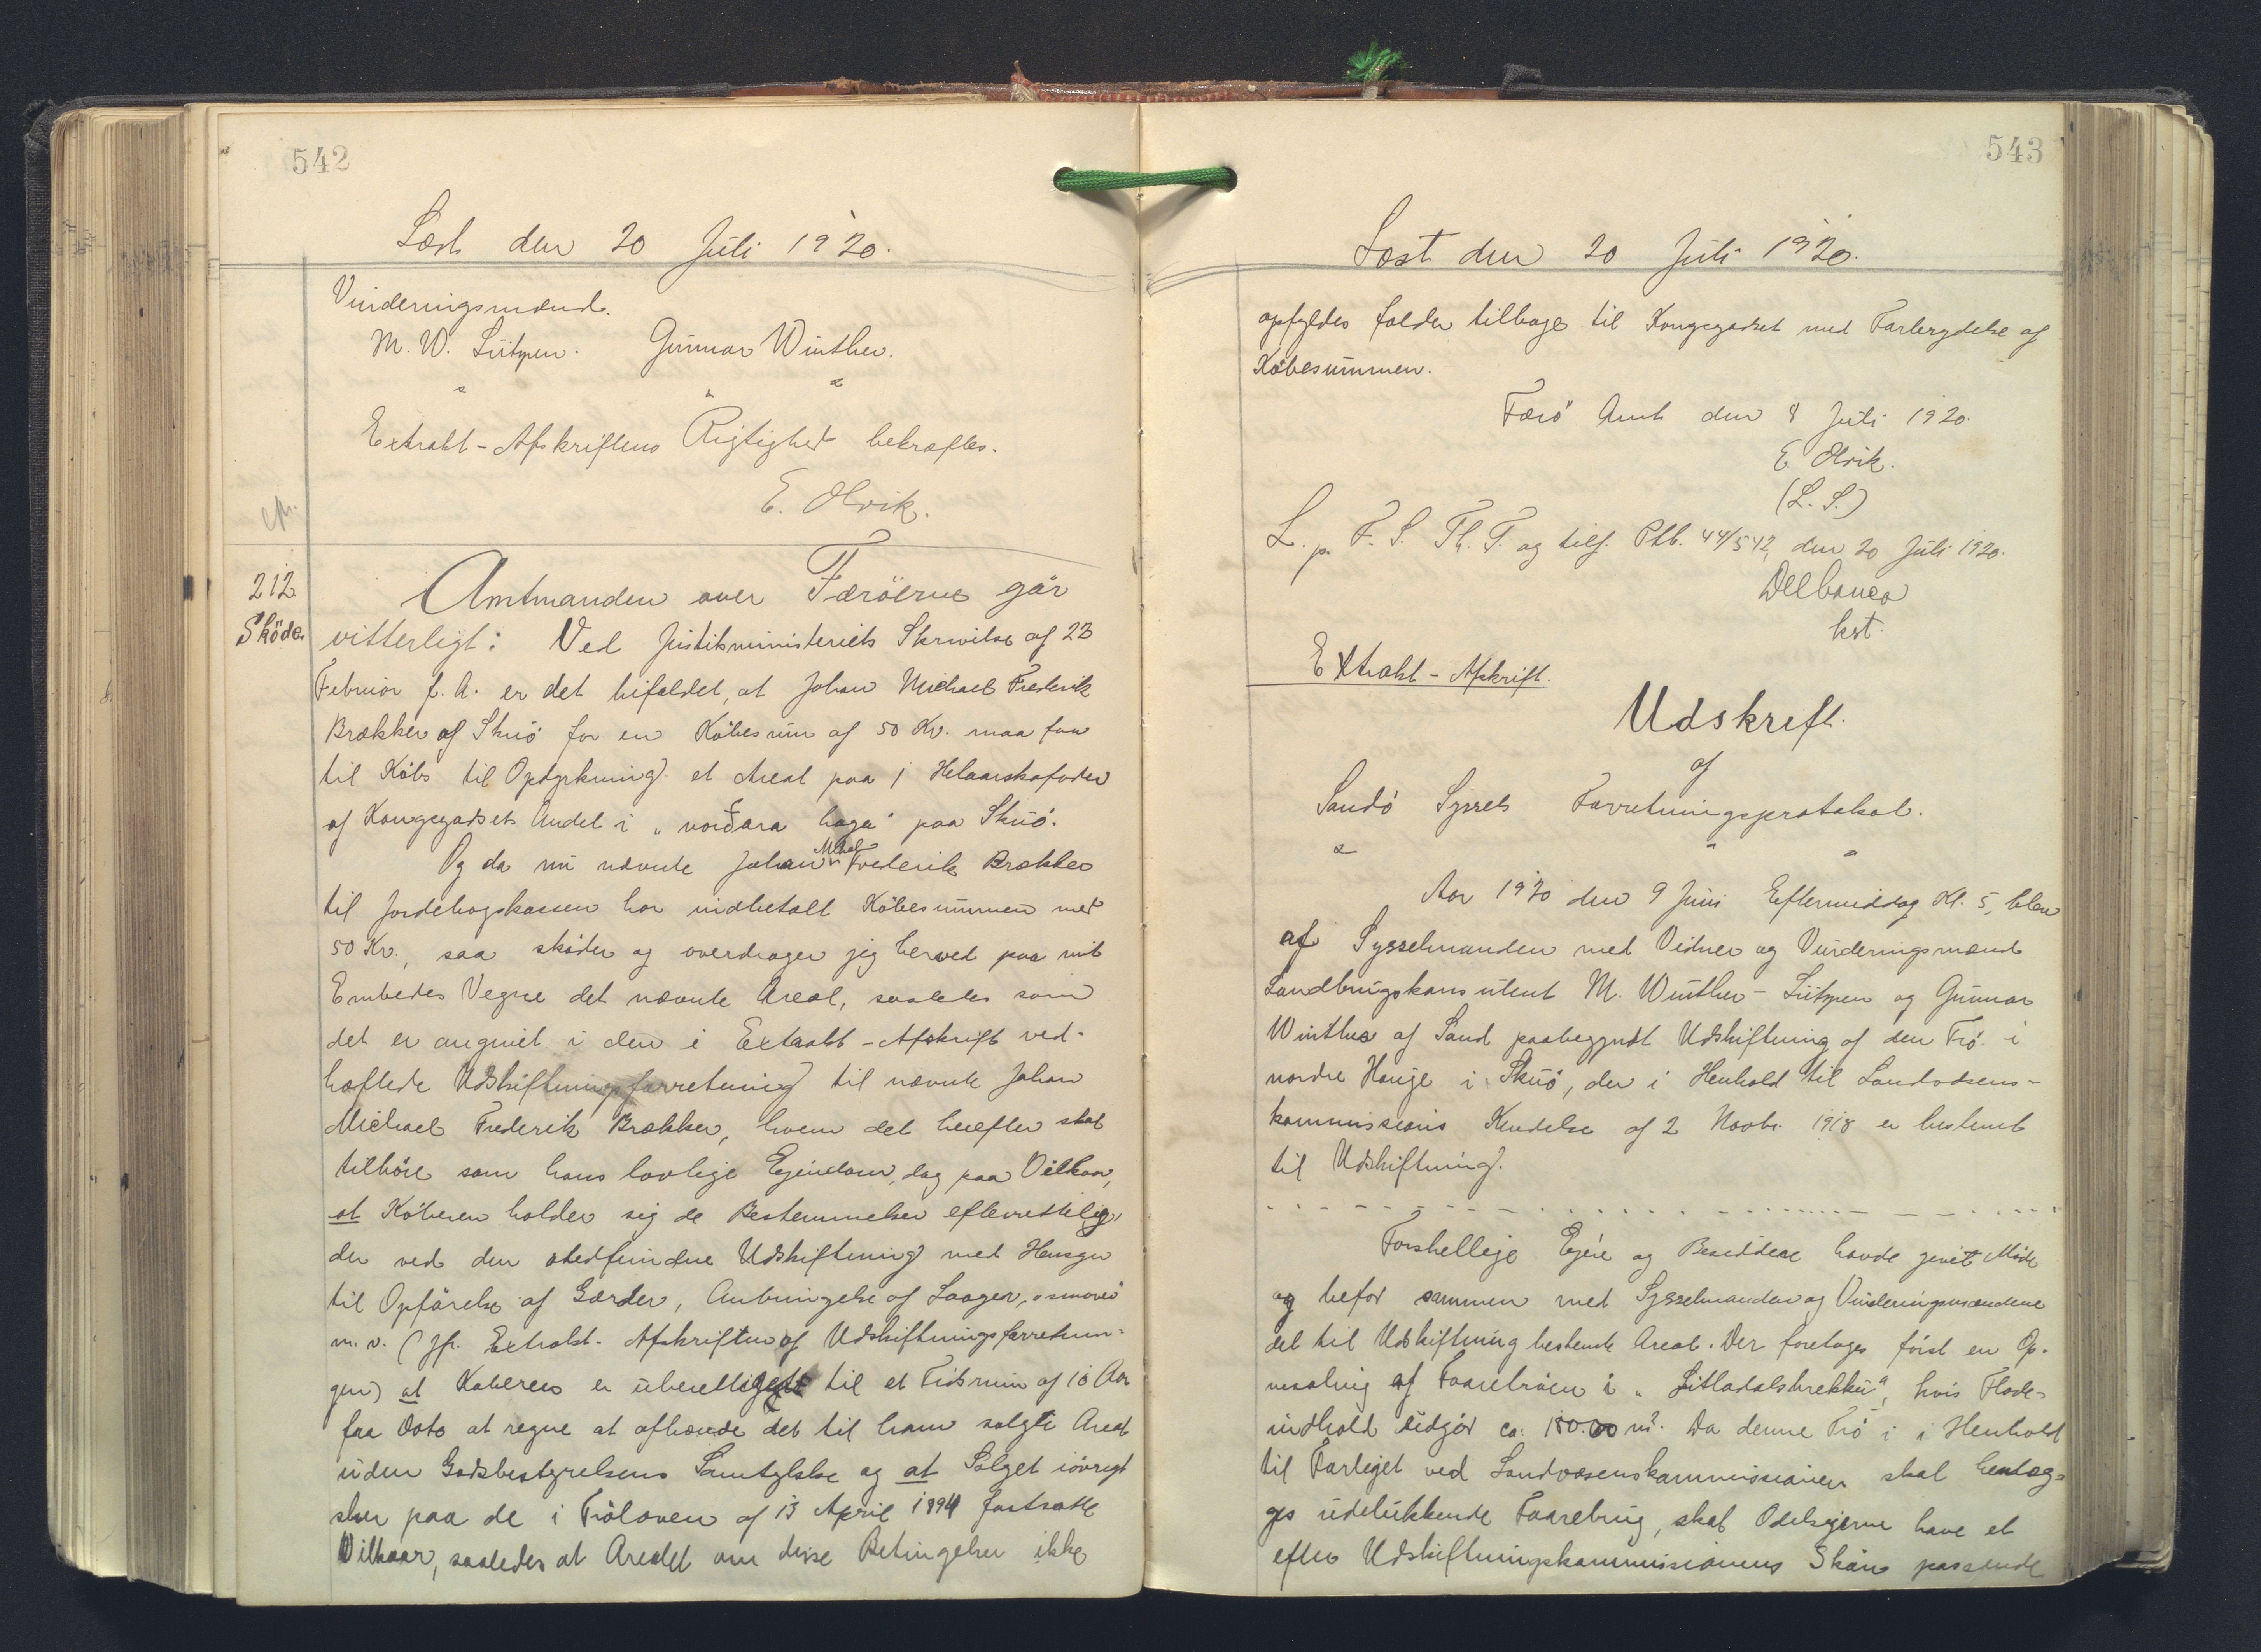 542
Læst den 20 Juli 1920.
Vurderingsmænd.
M. W. Lützen. Gunnar Winther.
" " "
Extrakt-Afskriftens Rigtighed bekræftes.
E. Olrik.
212
Sköde.
Amtmanden over Færöerne gör
vitterligt: Ved Justitsministeriets Skrivelse af 23
Februar f. A. er det bifaldet, at Johan Michael Frederik
Brækker af Skuö for en Köbesum af 50 Kr. maa faa
til Köbs til Opdyrkning et Areal paa 1 Helaarskofoder
af Kongegodsets Andel i "norðara haga" paa Skuö.
Og da nu nævnte Johan Mchel Frederik Brækker
til Jordebogskassen har indbetalt Köbesummen med
50 Kr., saa sköder og overdrager jeg herved paa mit
Embedes Vegne det nævnte Areal, saaledes som
det er angivet i den i Extrakt-Afskrift ved-
hæftede Udskiftningsforretning til nævnte Johan
Michael Frederik Brækker, hvem det herefter skal
tilhöre som hans lovlige Ejendom, dog paa Vilkaar,
at Köberen holder sig de Bestemmelser efterrettelig,
der ved den stedfundne Udskiftning med Hensyn
til Opförelse af Gærder, Anbringelse af Laager, osmovö
m. v. (jfr. Extrakt-Afskriften af Udskiftningsforretnin-
gen) at Köberen er uberettiget til et Tidsrum af 10 Aar
fra Dato at regne at afhænde det til ham solgte Areal
uden Godsbestyrelsens Samtykke og at Salget iövrigt
sker paa de i Tröloven af 13 April 1894 fastsatte
Vilkaar, saaledes at Arealet om disse Betingelser ikke
543
Læst den 20 Juli 1920.
opfyldes falder tilbage til Kongegodset med Fortabelse af
Köbesummen.
Færö Amt den 8 Juli 1920.
E. Olrik.
(L. S.)
L. p. F. S. Th. T. og tilf. Ptb. 44/542, den 20 Juli 1920.
Delbanco
kst.
Extrakt-Afskrift.
Udskrift
af
Sandö Syssels Forretningsprotokol.
" " "
Aar 1920 den 9 Juni Eftermiddag Kl. 5, blev
af Sysselmanden med Vidner og Vurderingsmænd
Landbrugskonsulent M. Winther-Lützen og Gunnar
Winther af Sand paabegyndt Udskiftning af den Trö i
nordre Hauge i Skuö, der i Henhold til Landvæsens-
kommissions Kendelse af 2 Novbr. 1918 er bestemt
til Udskiftning.
Forskellige Ejere og Besiddere havde givet Möde
og befor sammen med Sysselmanden og Vurderingsmændene
det til Udskiftning bestemte Areal. Der foretages först en Op-
maaling af Faaretröen i "Litladalsbrekku", hvis Flade-
indhold udgör ca. 180.00 m². Da denne Trö i i Henhold
til Forliget ved Landvæsenskommissionen skal henlæg-
ges udelukkende Faarebrug, skal Odelsejerne have et
efter Udskiftningskommissionens Skön passende